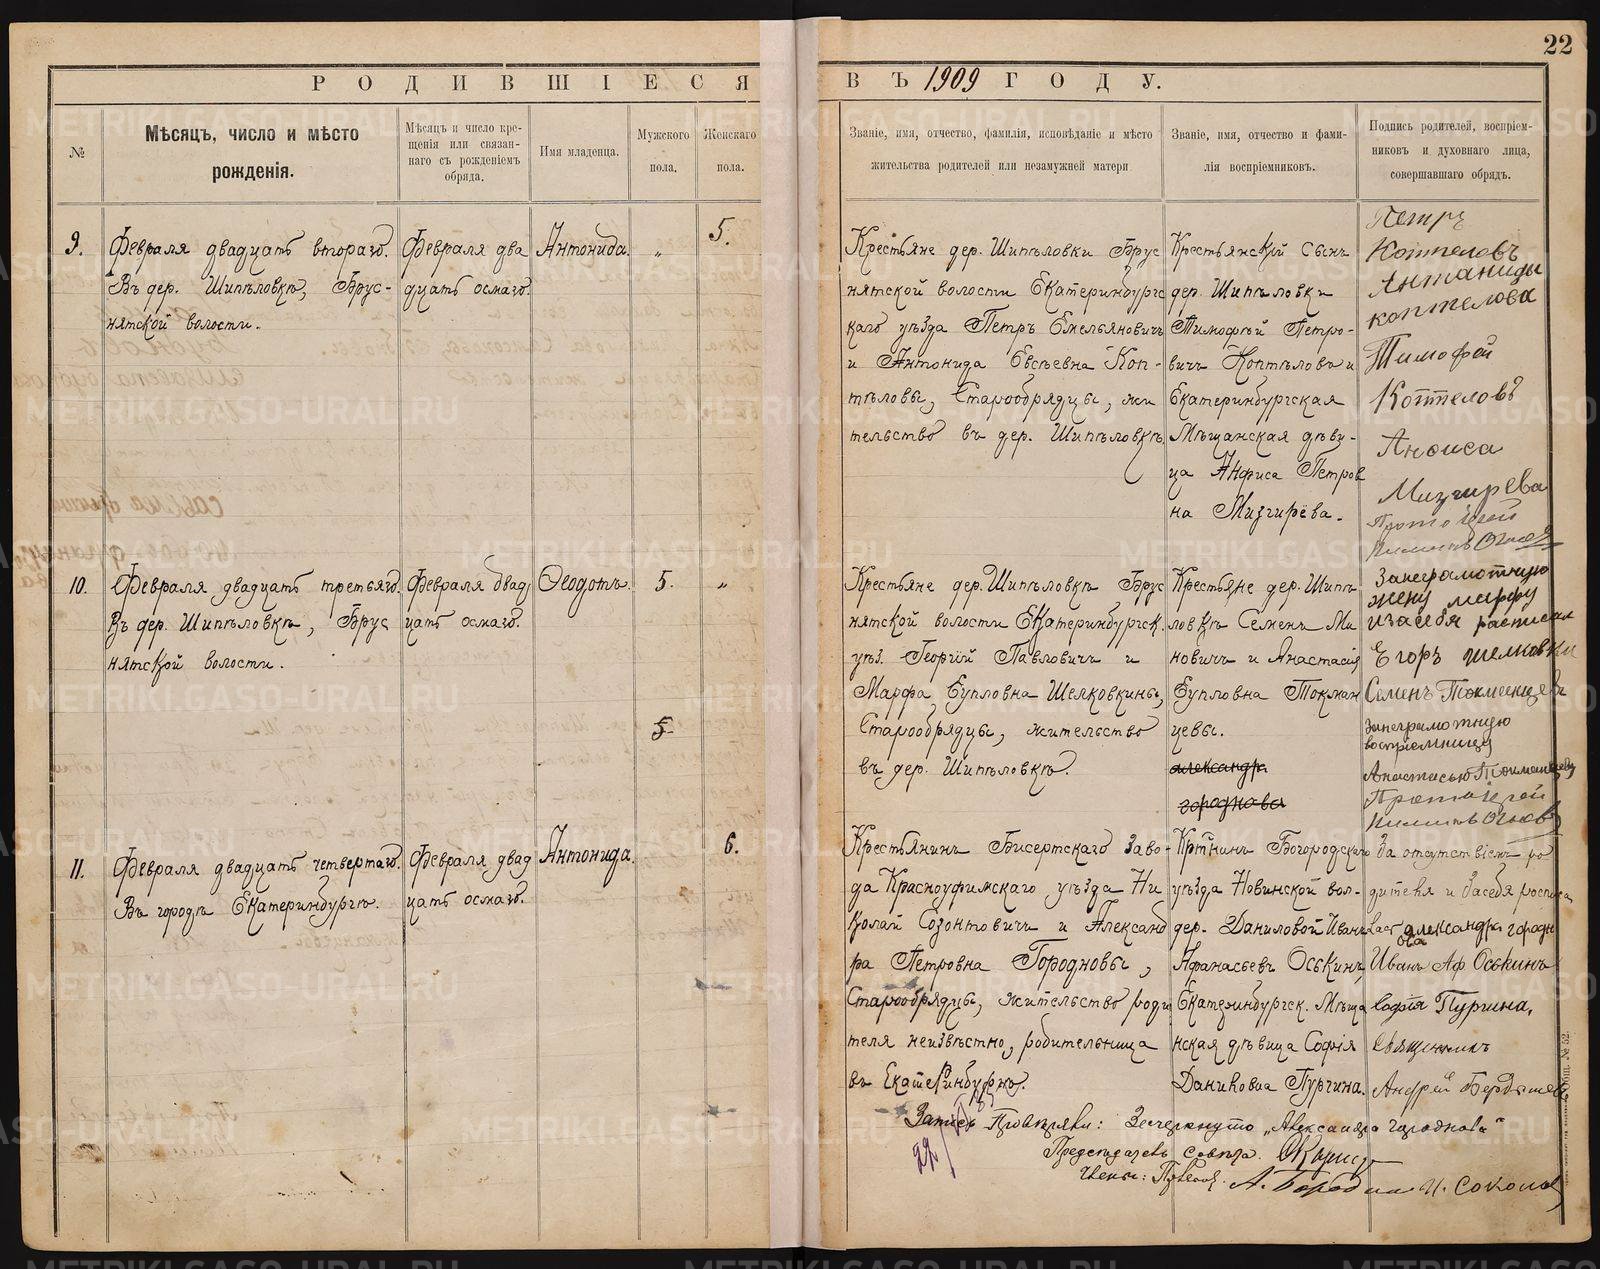 22
РОДИВШІЕСЯ
ВЪ 1909 ГОДУ.
№
Мѣсяцъ, число и мѣсто
рожденія.
Мѣсяцъ и число кре-
щенія или связан-
наго съ рожденіемъ
обряда.
Имя младенца.
Мужского
пола.
Женскаго
пола.
Званіе, имя, отчество, фамилія, исповѣданіе и мѣсто
жительства родителей или незамужней матери
Званіе, имя, отчество и фами-
лія воспріемниковъ.
Подпись родителей, воспріем-
никовъ и духовнаго лица,
совершавшаго обрядъ.
9.
Февраля двадцать втораго.
Въ дер. Шипѣловкѣ, Брус-
нятской волости.
Февраля два
дцать осмаго.
Антонида.
"
5.
Крестьяне дер. Шипѣловки Брус
нятской волости Екатеринбургс
каго уѣзда Петръ Емельяновичъ
и Антонида Евсѣевна Коп-
тѣловы, Старообрядцы, жи
тельство въ дер. Шипѣловкѣ.
Крестьянскій Сынъ
дер. Шипѣловки
Тимофѣй Петро-
вичъ Коптѣловъ и
Екатеринбургская
Мѣщанская дѣви-
ца Анфиса Петров
на Мизгирёва.
Петръ
Коптеловъ
Антаниды
коптелова
Тимофей
Коптеловъ
Анфиса
Мизгирева
Протоіерей
10.
Февраля двадцать третьяго.
Въ дер. Шипѣловкѣ, Брус
нятской волости.
Февраля двад
цать осмаго.
Ѳеодотъ.
5.
"
5
Крестьяне дер. Шипѣловкѣ Брус
нятской волости Екатеринбургск.
уѣз. Георгій Павловичъ и
Марфа Еупловна Шелковкины,
Старообрядцы, жительство
въ дер. Шипѣловкѣ.
Крестьяне дер. Шипѣ
ловкѣ Семенъ Ми
новичъ и Анастасія
Еупловна Токман
цевы.
александра
городнова
Занеграмотную
жену марфу
изасебя расписал
Егоръ шелковки
Семенъ Токманцевъ
Занеграмотную
воспріемницу
Анастасью Токманцеву
Протоіерей
11.
Февраля двадцать четвертаго.
Въ городѣ Екатеринбургѣ.
Февраля двад
цать осмаго.
Антонида.
6.
Крестьянинъ Бисертскаго Заво-
да Красноуфимскаго уѣзда Ни
колай Созонтовичъ и Александ
ра Петровна Городновы,
Старообрядцы, жительство роди
теля неизвѣстно, родительница
въ Екатеринбургѣ.
Кртнинъ Богородскаго
уѣзда Новинской вол-
дер. Даниловой Иванъ
Афанасьевъ Оськинъ,
Екатеринбургск. Мѣща
нская дѣвица Софія
Даниловна Пургина.
За отсутствіемъ ро
дителя и Засебя росписа
лась александра городн
ова
Иванъ Аф Оськинъ
Софія Пургина.
Священникъ
Андрей
Запись Провѣряли: Зачеркнуто „Александра городнова"
Предсѣдатель совѣта.
Члены:
И. Соколов